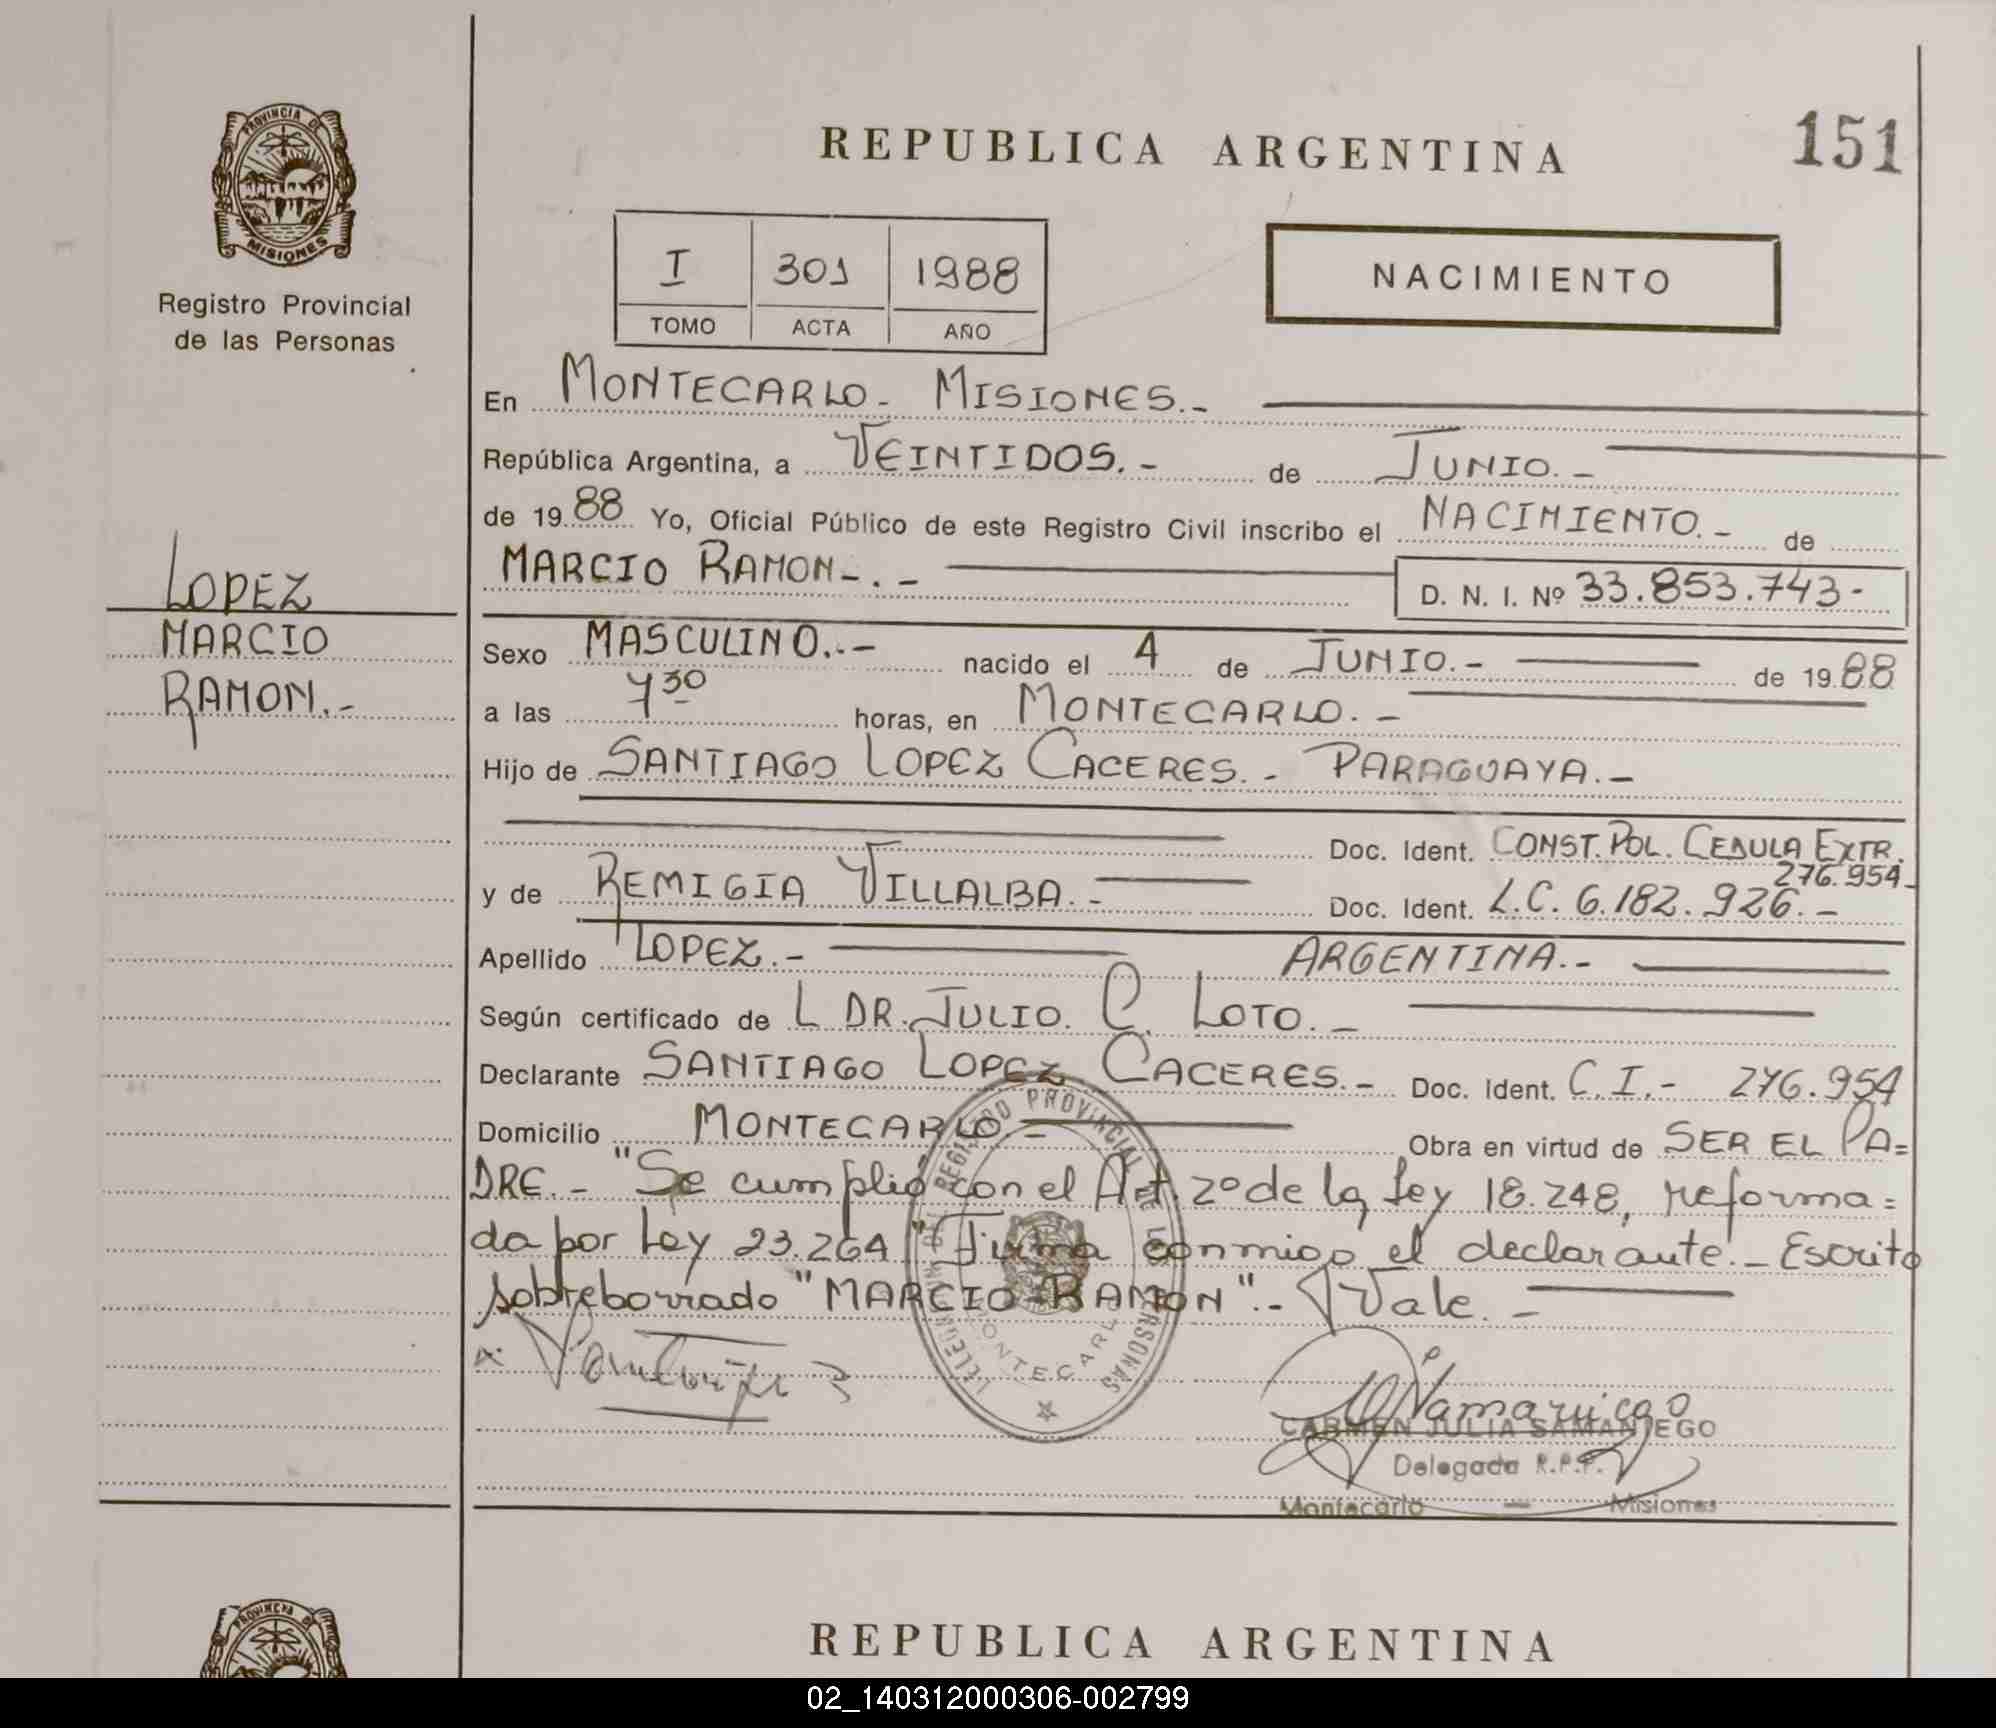 PROVINCIA DE
MISIONES
Registro Provincial
de las Personas
LOPEZ
MARCIO
RAMON.-
REPUBLICA ARGENTINA
151
I 301 1988
TOMO ACTA AÑO
NACIMIENTO
En MONTECARLO- MISIONES.-
República Argentina, a VEINTIDOS.- de JUNIO.-
de 1988 Yo, Oficial Público de este Registro Civil inscribo el NACIMIENTO.- de
MARCIO RAMON-.- D. N. I. Nº 33.853.743-
Sexo MASCULINO.- nacido el 4 de JUNIO.- de 1988
a las 7 30 horas, en MONTECARLO.-
Hijo de SANTIAGO LOPEZ CACERES.- PARAGUAYA.-
Doc. Ident. CONST. POL. CEDULA EXTR.
276.954-
y de REMIGIA VILLALBA.- Doc. Ident. L.C. 6.182.926.-
Apellido LOPEZ.- ARGENTINA.-
Según certificado de L DR. JULIO. C. LOTO.-
Declarante SANTIAGO LOPEZ CACERES.- Doc. Ident. C.I.- 276.954
Domicilio MONTECARLO.- Obra en virtud de SER EL PA=
DRE.- "Se cumplió con el Art. 2º de la Ley 18.248, reforma=
da por Ley 23.264" Firma conmigo el declarante.- Escrito
sobreborrado "MARCIO RAMON".- Vale.-
REGISTRO PROVINCIAL DE LAS PERSONAS
MONTECARLO
CARMEN JULIA SAMANIEGO
Delegada R.P.P.
Montecarlo - Misiones
PROVINCIA DE
REPUBLICA ARGENTINA
02_140312000306-002799